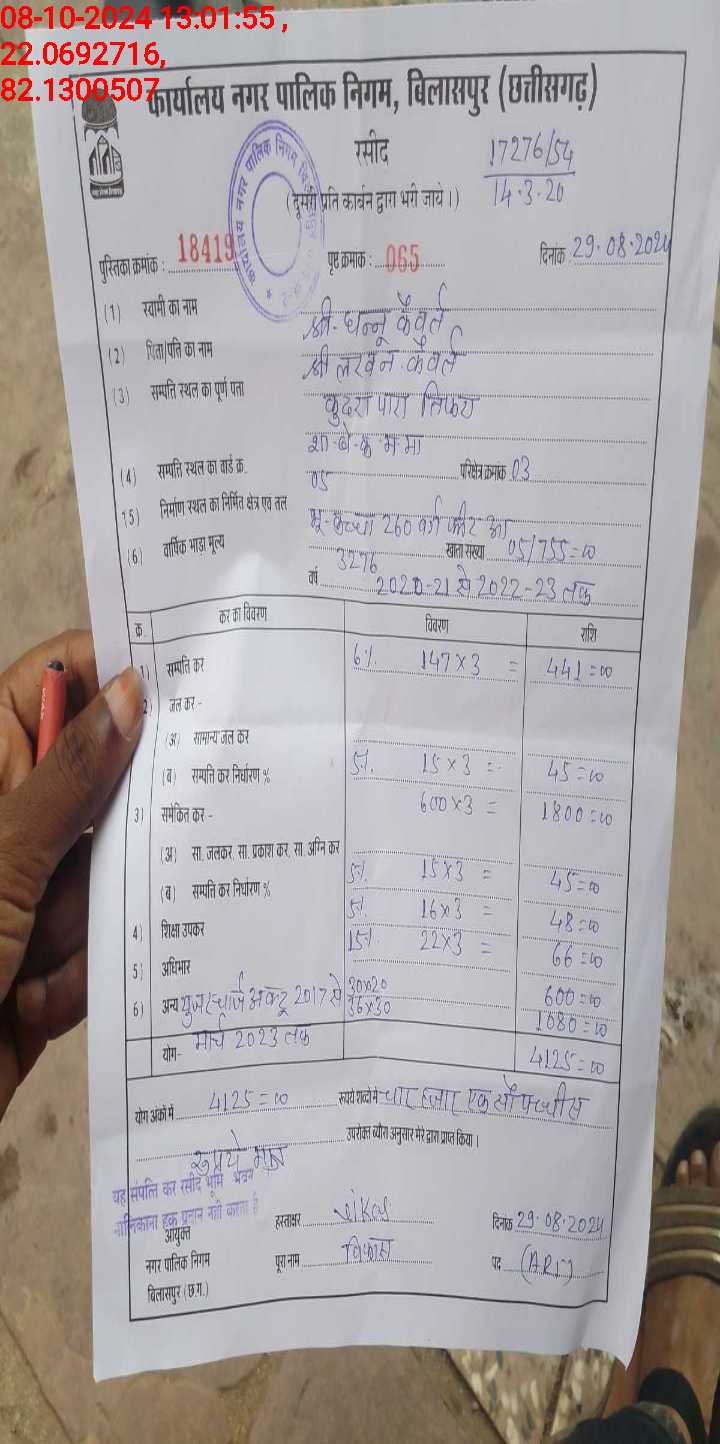 08-10-2024 13:01:55 ,
22.0692716,
82.1300507
कार्यालय नगर पालिक निगम, बिलासपुर (छत्तीसगढ़)
रसीद 17276/54
14.3.20
(दूसरी प्रति कार्बन द्वारा भरी जाये।)
पुस्तिका क्रमांक : 18419 पृष्ट क्रमाक : 065 दिनांक 29.08.2024
(1) स्वामी का नाम श्री. धन्नू केवर्त
(2) पिता/पति का नाम श्री लखन केवर्त
(3) सम्पत्ति स्थल का पूर्ण पता कुदरा पारा तिफरा
(4) सम्पत्ति स्थल का वार्ड क्र. 05 परिक्षेत्र क्रमाक 03
15) निर्माण स्थल का निर्मित क्षेत्र एव तल भू-कच्चा 260 वर्ग फीट
(6) वार्षिक भाड़ा मूल्य 3276 खाता सख्या 05/755=00
वर्ष 2020-21 से 2022-23 तक
क्र. कर का विवरण विवरण राशि
1) सम्पत्ति कर 6% 147×3 = 441=00
2) जल कर -
(अ) सामान्य जल कर
(ब) सम्पत्ति कर निर्धारण % 15×3 = 45=00
3) समेकित कर - 600×3 = 1800=00
(अ) सा. जलकर, सा. प्रकाश कर, सा. अग्नि कर
(ब) सम्पत्ति कर निर्धारण % 15×3 = 45=00
4) शिक्षा उपकर 16×3 = 48=00
5) अधिभार 22×3 = 66=00
6) अन्य यूजर चार्ज अक्टू 2017 से 30×20 600=00
36×30 1080=00
मार्च 2023 तक
योग- 4125=00
योग अंकों में 4125=00 रूपये शब्दों में चार हजार एक सौ पच्चीस
रुपये मात्र उपरोक्त ब्यौरा अनुसार मेरे द्वारा प्राप्त किया।
यह संपत्ति कर रसीद भूमि भवन
मालिकाना हक प्रदान नही करता है
आयुक्त हस्ताक्षर Vikas दिनांक 29.08.2024
नगर पालिक निगम पूरा नाम विकास पद (ARI)
बिलासपुर (छ.ग.)